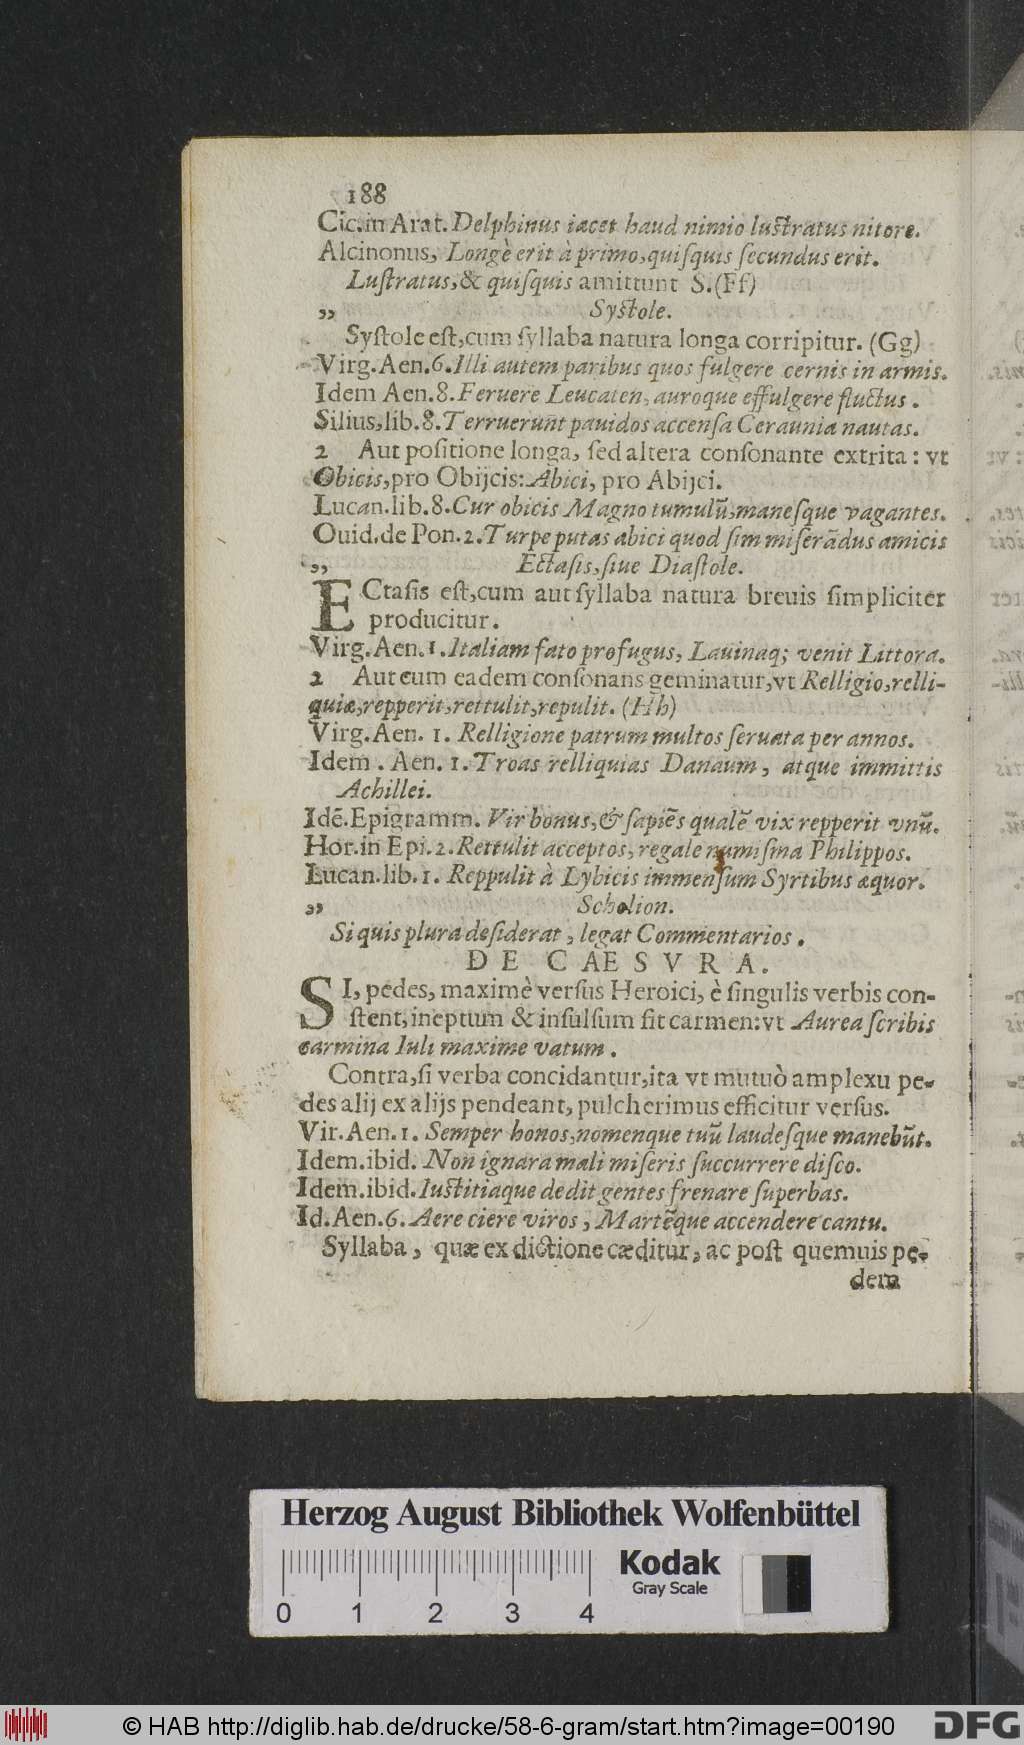 188
Cic.in Arat. Delphinus iacet haud nimio lustratus nitore.
Alcinonus, Longè erit à primo,quiſquis ſecundus erit.
Luſtratus,& quiſquis amittunt S.(Ff)
„ Syſtole.
Syſtole eſt,cum ſyllaba natura longa corripitur. (Gg)
Virg.Aen.6.Illi autem paribus quos fulgere cernis in armis.
Idem Aen.8.Feruere Leucaten, auroque effulgere fluctus .
Silius,lib.8.Terruerunt pauidos accenſa Ceraunia nautas.
2 Aut poſitione longa, ſed altera conſonante extrita : vt
Obicis,pro Obijcis: Abici, pro Abijci.
Lucan.lib.8.Cur obicis Magno tumulũ,maneſque vagantes.
Ouid.de Pon.2.Turpe putas abici quod ſim miſerãdus amicis
„ Ectaſis,ſiue Diaſtole.
ECtaſis eſt,cum aut ſyllaba natura breuis ſimpliciter
producitur.
Virg.Aen.1.Italiam fato profugus, Lauinaq; venit Littora.
2 Aut cum eadem conſonans geminatur,vt Relligio,relli-
quiæ,repperit,rettulit,repulit. (Hh)
Virg.Aen. 1. Relligione patrum multos ſeruata per annos.
Idem . Aen. 1.Troas relliquias Danaum, atque immittis
Achillei.
Idẽ.Epigramm. Vir bonus,& ſapiẽs qualẽ vix repperit vnũ.
Hor.in Epi.2.Rettulit acceptos, regale numiſma Philippos.
Lucan.lib.1. Reppulit à Lybicis immenſum Syrtibus æquor.
„ Scholion.
Si quis plura deſiderat, legat Commentarios.
DE CAESVRA.
SI, pedes, maximè verſus Heroici, è ſingulis verbis con-
ſtent,ineptum & inſulſum fit carmen:vt Aurea ſcribis
carmina Iuli maxime vatum.
Contra,ſi verba concidantur,ita vt mutuò amplexu pe-
des alij ex alijs pendeant, pulcherimus efficitur verſus.
Vir.Aen.1. Semper honos,nomenque tuũ laudeſque manebũt.
Idem.ibid. Non ignara mali miſeris ſuccurrere diſco.
Idem.ibid.Iuſtitiaque dedit gentes frenare ſuperbas.
Id.Aen.6.Aere ciere viros, Martẽque accendere cantu.
Syllaba, quæ ex dictione cæditur, ac poſt quemuis pe-
dem
Herzog August Bibliothek Wolfenbüttel
Kodak
Gray Scale
0 1 2 3 4
© HAB http://diglib.hab.de/drucke/58-6-gram/start.htm?image=00190
DFG